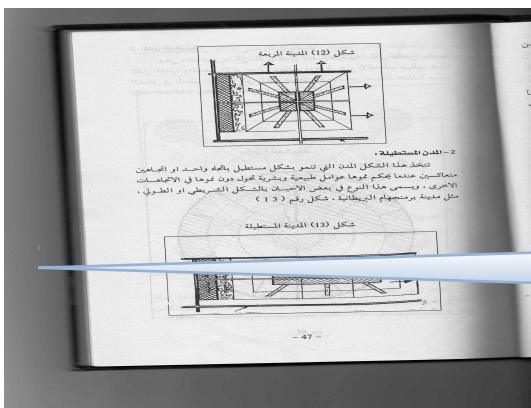 شكل (12) المدينة المربعة
2- المدن المستطيلة .
تتخذ هذا الشكل المدن التي تنمو بشكل مستطيل باتجاه واحد او اتجاهين
متعاكسين عندما يحكم نموها عوامل طبيعية وبشرية تحول دون نموها في الاتجاهات
الاخرى ، ويسمى هذا النوع في بعض الاحيان بالشكل الشريطي او الطولي ،
مثل مدينة برمنجهام البريطانية ، شكل رقم ( 13 )
شكل (13) المدينة المستطيلة
- 47 -